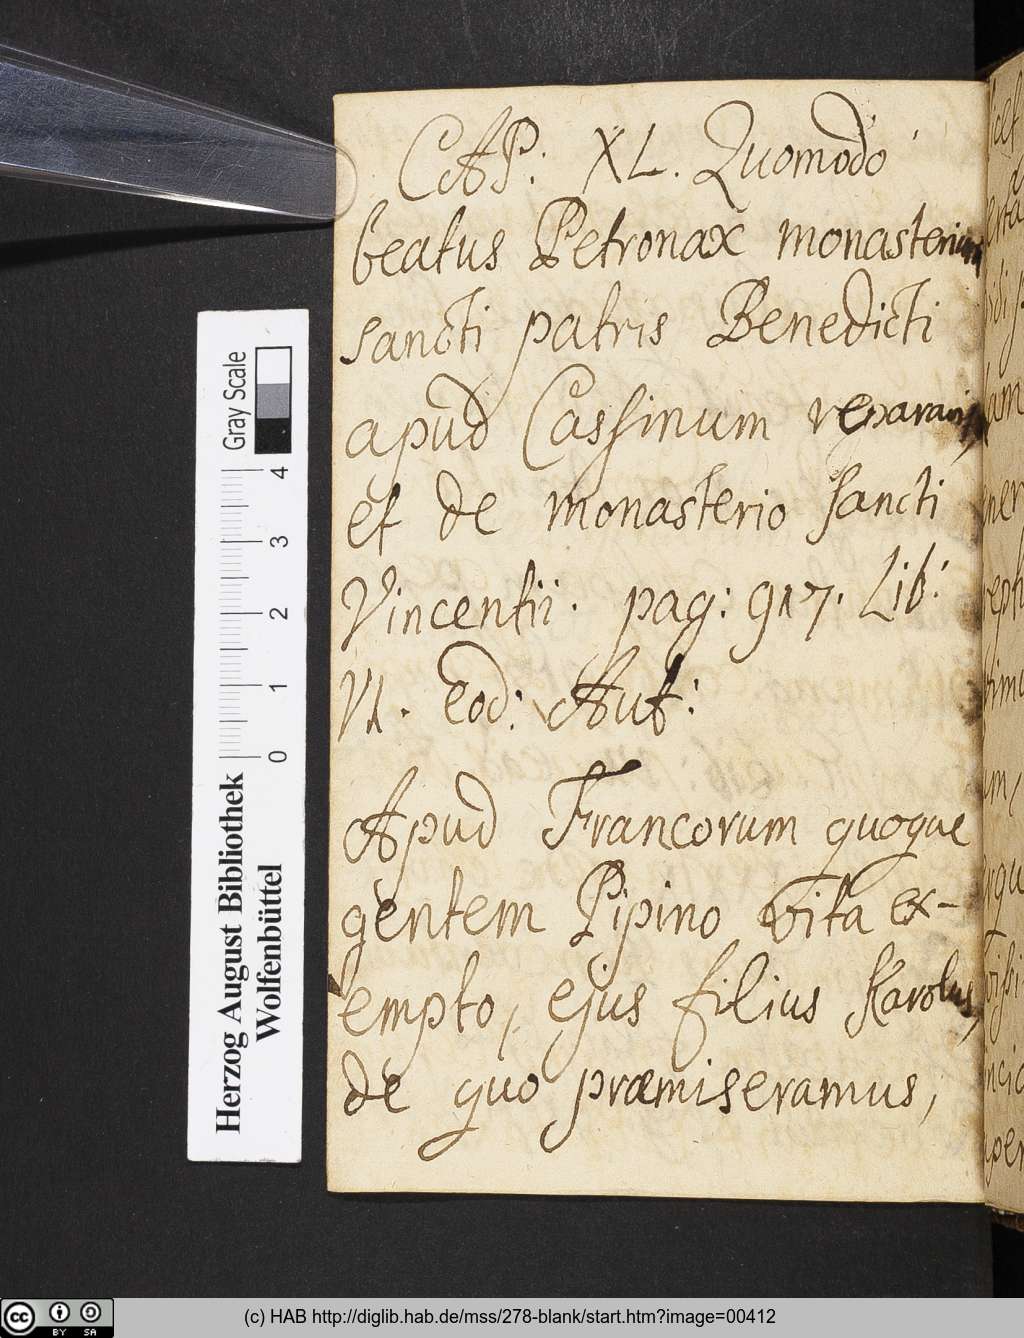 CAP. XL. Quomodo
beatus Petronax monasterium
sancti patris Benedicti
apud Cassinum reparavit,
et de monasterio sancti
Vincentii. pag: 917. Lib:
VI. Eod: Aut:
Apud Francorum quoque
gentem Pipino vita ex-
empto, ejus filius Karolus,
de quo præmiseramus,
Herzog August Bibliothek
Wolfenbüttel
Gray Scale
0 1 2 3 4
cc BY SA
(c) HAB http://diglib.hab.de/mss/278-blank/start.htm?image=00412